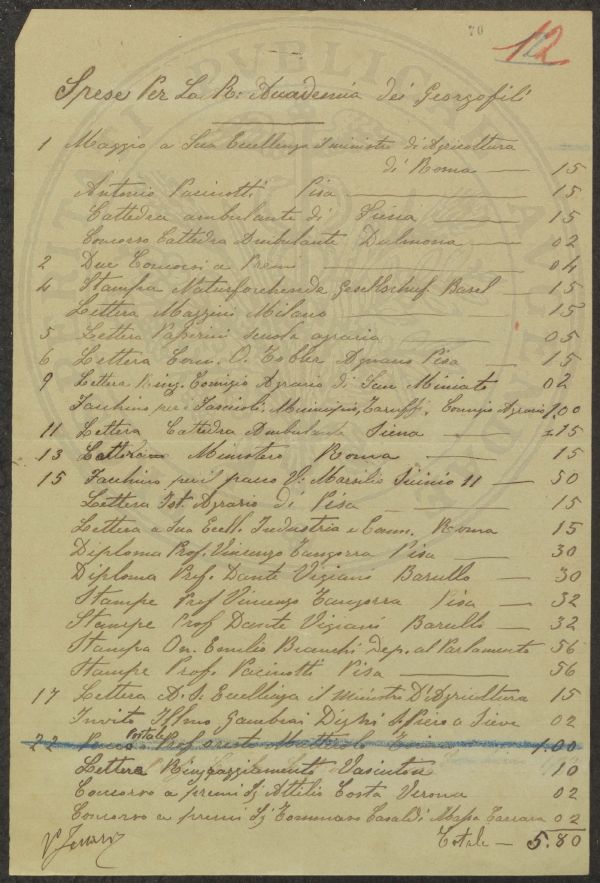 70
12
Spese Per La R: Accademia dei Georgofili
1 Maggio a Sua Eccellenza il ministro di Agricoltura
di Roma — 15
Antonio Pacinotti Pisa — 15
Cattedra ambulante di Siena — 15
Concorso Cattedra Ambulante Sulmona — 02
2 Due Concorsi a Premi — 04
4 Stampa Naturforchende Gesellschaf Basel — 15
Lettera Mazzini Milano — 15
5 Lettera Passerini scuola agraria — 05
6 Lettera Com. O. Pisa — 15
9 Lettera Ring. Comizio Agrario di San Miniato 02
Facchino per i Fascicoli, Municipio, Comizio Agrario 1,00
11 Lettera Cattedra Ambulante Siena — 15
13 Lettera Ministero Roma — 15
15 Facchino per il pacco V: Marsilio 11 — 50
Lettera Ist. Agrario di Pisa — 15
Lettera a Sua Eccll. Industria e Comm. Roma 15
Diploma Prof. Vincenzo Tangorra Pisa — 30
Diploma Prof. Dante Vigiani Barullo — 30
Stampe Prof Vincenzo Tangorra Pisa — 32
Stampe Prof Dante Vigiani Barullo — 32
Stampa On. Emilio Bianchi Dep. al Parlamento 56
Stampe Prof. Pacinotti Pisa — 56
17 Lettera A. S. Eccellenza il Ministro D'Agricoltura 15
Invito Illmo Gambrai Dighi S. Piero a Sieve 02
22 Pacco Postale Prof. Oreste Mattirolo Torino — 1.00
Lettera Ringraziamento Vasinton 10
Concorso a premi Sj Attilio Costa Verona 02
Concorso a premi Sj Tommaso Casaldi Massa Carrara 02
Totale — 5.80